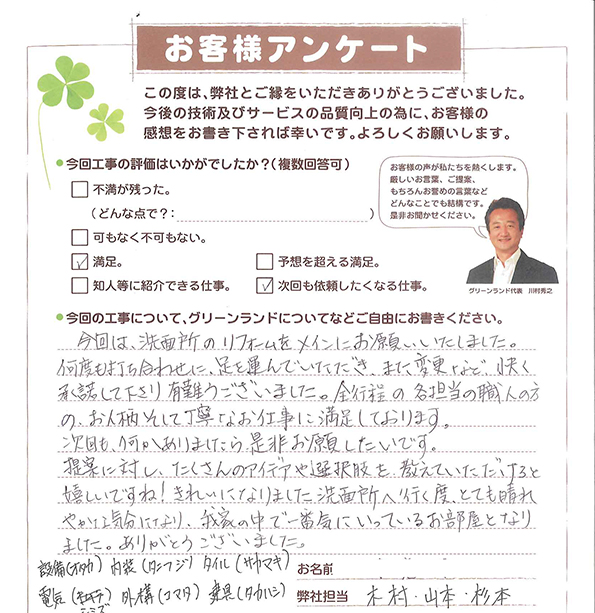 お客様アンケート
この度は、弊社とご縁をいただきありがとうございました。
今後の技術及びサービスの品質向上の為に、お客様の
感想をお書き下されば幸いです。よろしくお願いします。
●今回工事の評価はいかがでしたか？（複数回答可）
□不満が残った。
（どんな点で？：　）
□可もなく不可もない。
☑満足。　□予想を超える満足。
□知人等に紹介できる仕事。　☑次回も依頼したくなる仕事。
お客様の声が私たちを熱くします。
厳しいお言葉、ご提案、
もちろんお誉めの言葉など
どんなことでも結構です。
是非お聞かせください。
グリーンランド代表　川村秀之
●今回の工事について、グリーンランドについてなどご自由にお書きください。
今回は、洗面所のリフォームをメインにお願いいたしました。
何度も打ち合わせに、足を運んでいただき、また変更など、快く
承諾して下さり有難うございました。全行程の各担当の職人の方
の、お人柄そして丁寧なお仕事に満足しております。
次回も、何かありましたら是非お願したいです。
提案に対し、たくさんのアイデアや選択肢を、教えていただけると
嬉しいですね！きれいになりました洗面所へ行く度、とても晴れ
やかな気分になり、我家の中で一番気にいっているお部屋となり
ました。ありがとうございました。
設備(オタカ) 内装(タニフジ) タイル(サカマキ)
お名前
電気 外構(コマタ) 建具(タカハシ)
弊社担当　木村・山本・杉本